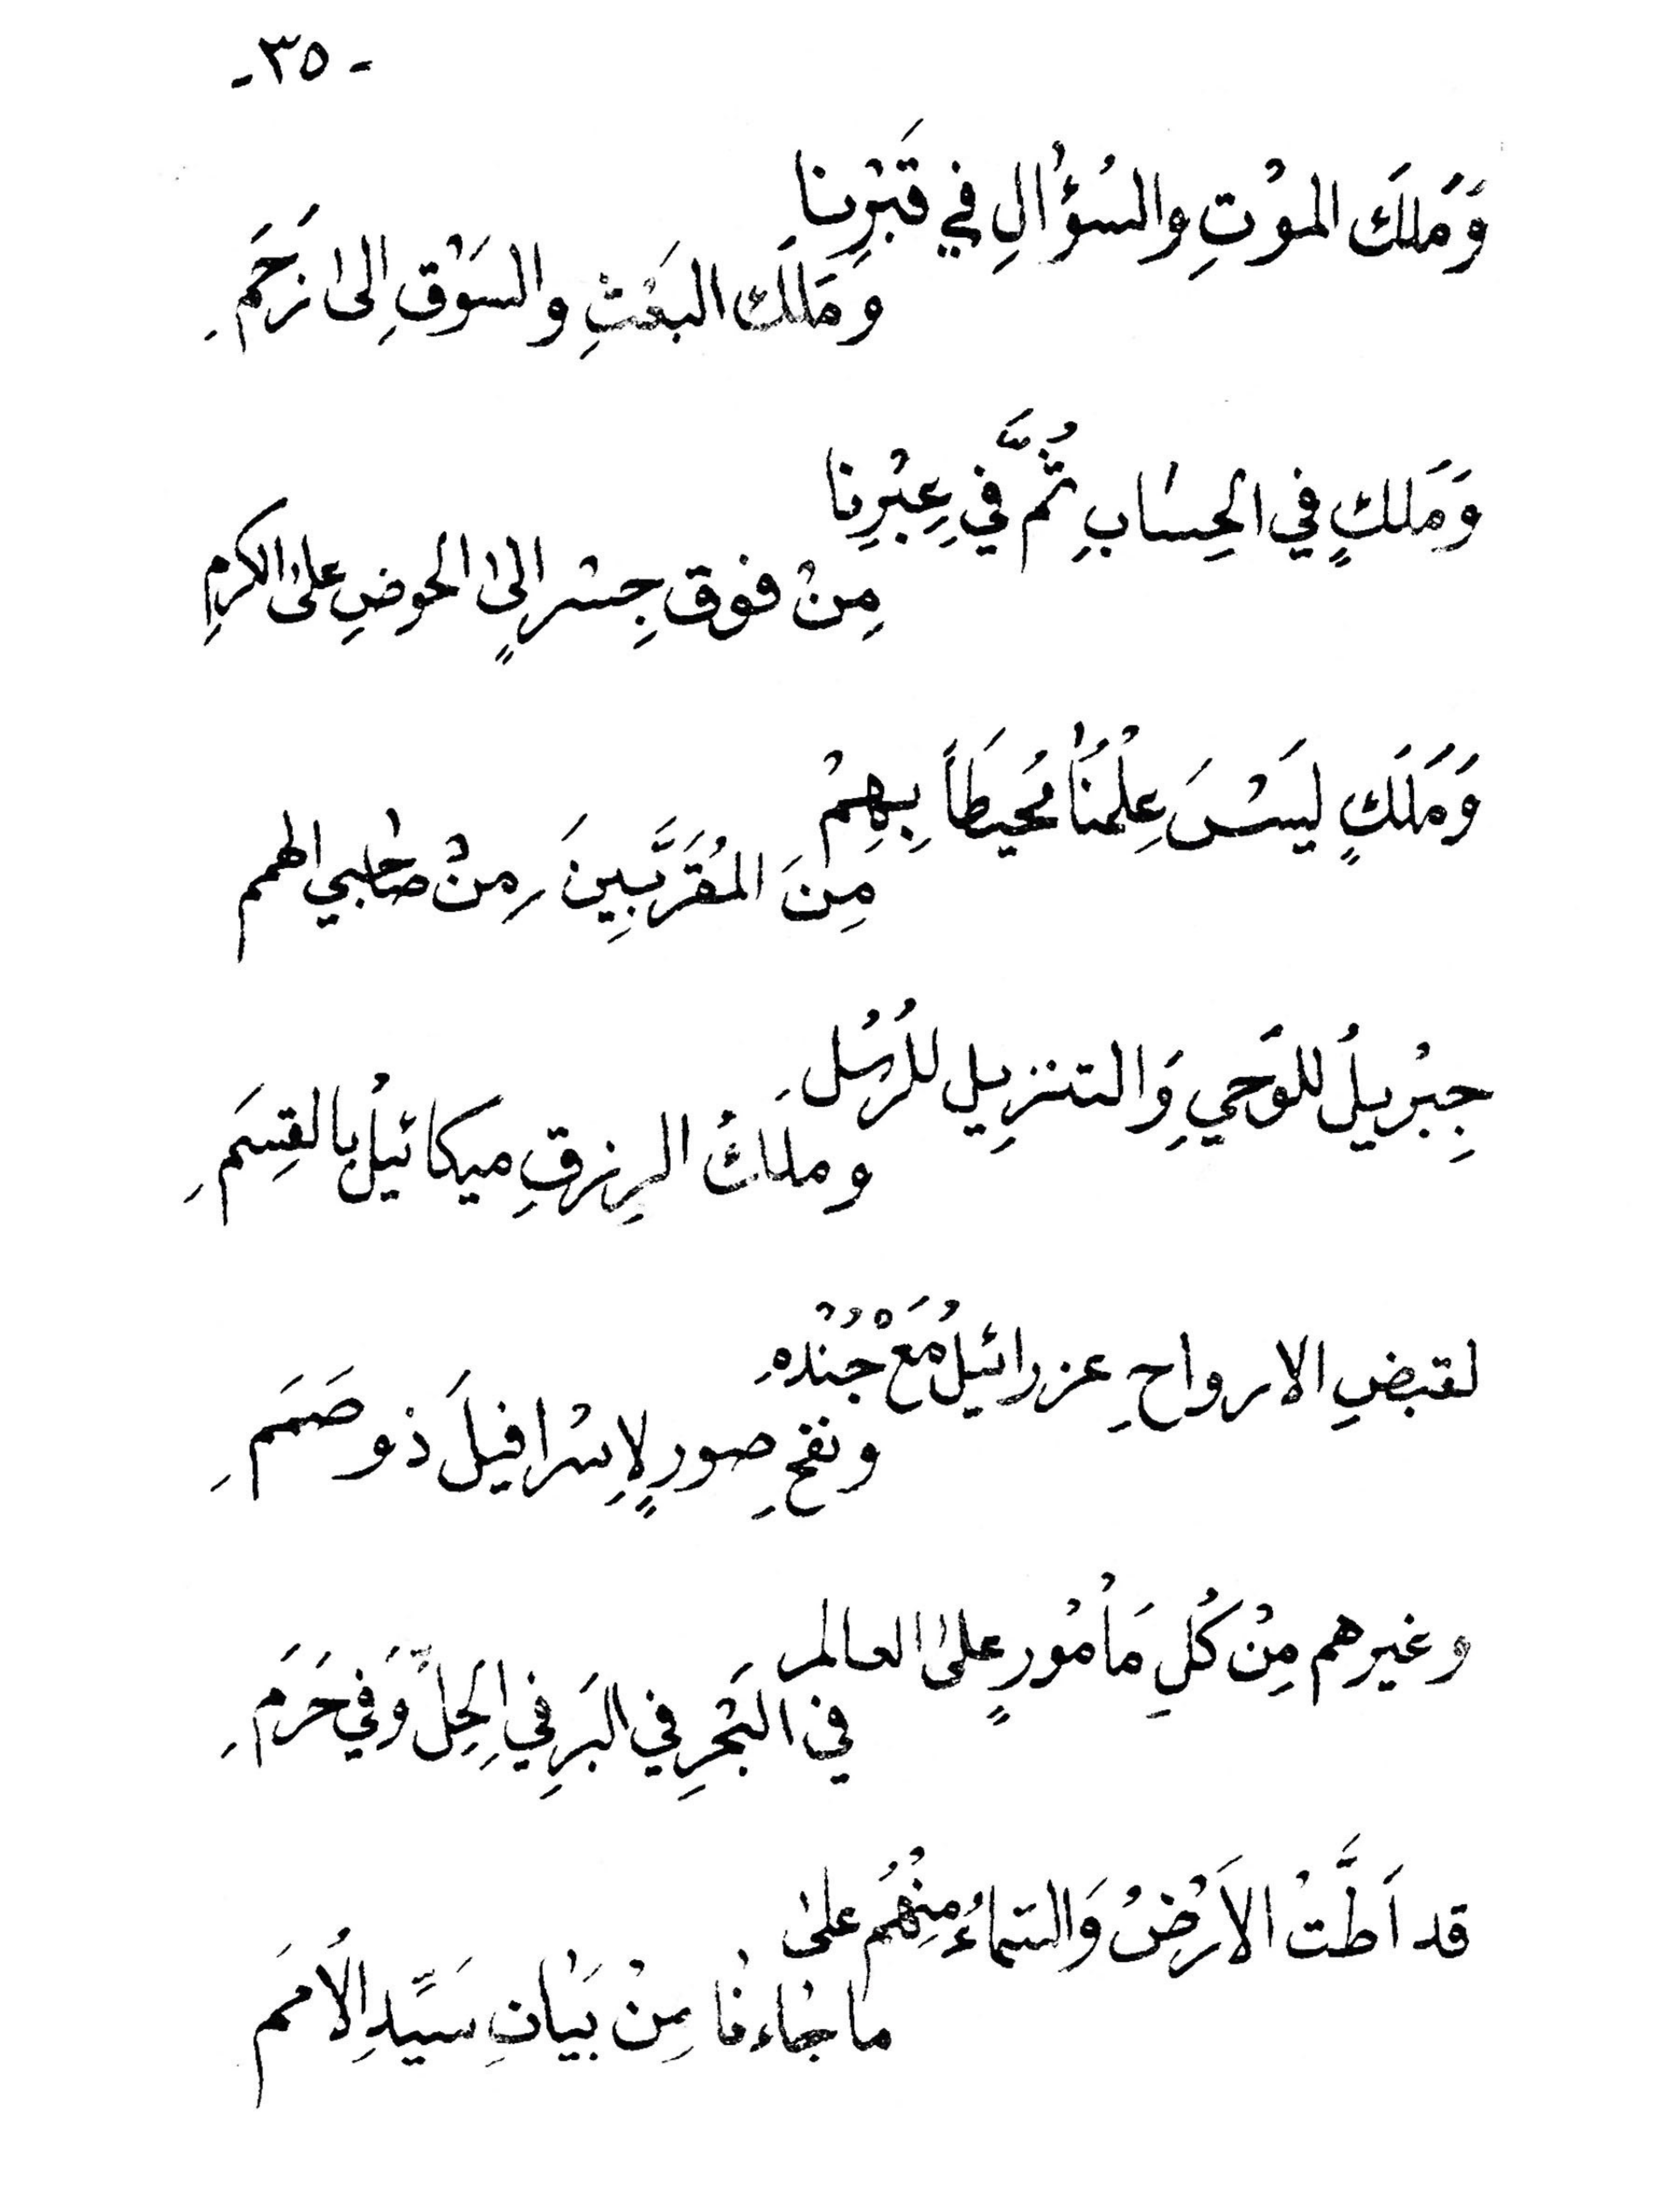 - ٣٥ -
وَمَلَكَ الموْتِ والسُؤْالِ في قَبْرِنا
وَمَلَكَ البَعْثِ والسَوْقِ اِلىٰ زَحَمِ
وَمَلَكٍ في الحِسٰابِ ثُمَّ في عِبْرِنا
مِنْ فوق جِسْرٍ الىٰ الحوضِ علىٰ الكرمِ
وَمَلَكٍ ليَسْسَ عِلْمُنٰا مُحيَطاً بِهِمْ
مِنَ المُقَرَّبِينَ مِنْ صٰاحبي الهمم
جِبْريلُ للوَحْيِ وَالتنزِيل للرُسُلِ
وملَكُ الرِزقِ ميكائيلُ بالقِسَمِ
لقبضِ الارواحِ عزرائيلُ مَعْ جُنْدهِ
ونفخِ صورٍ لاِسْرافيلَ ذو صَمَمِ
وغيرهم مِنْ كُلِ مَأْمُورٍ علىٰ العالم
في البَحْرِ في البَرِ في الحِلِّ وَفي حَرَمِ
قد اَطَّتْ الاَرْضُ وَالسّماءُ مِنْهُمْ علىٰ
مٰا جٰاءنٰا مِنْ بَيٰانِ سَيِّدِ الاُمَم